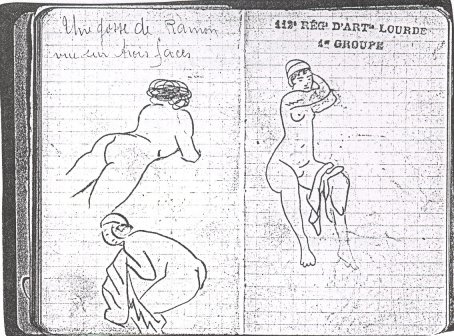 Une gosse de Ramon
vue sur trois faces
112ᵉ RÉGᵗ D'ARTⁱᵉ LOURDE
1ᵉʳ GROUPE